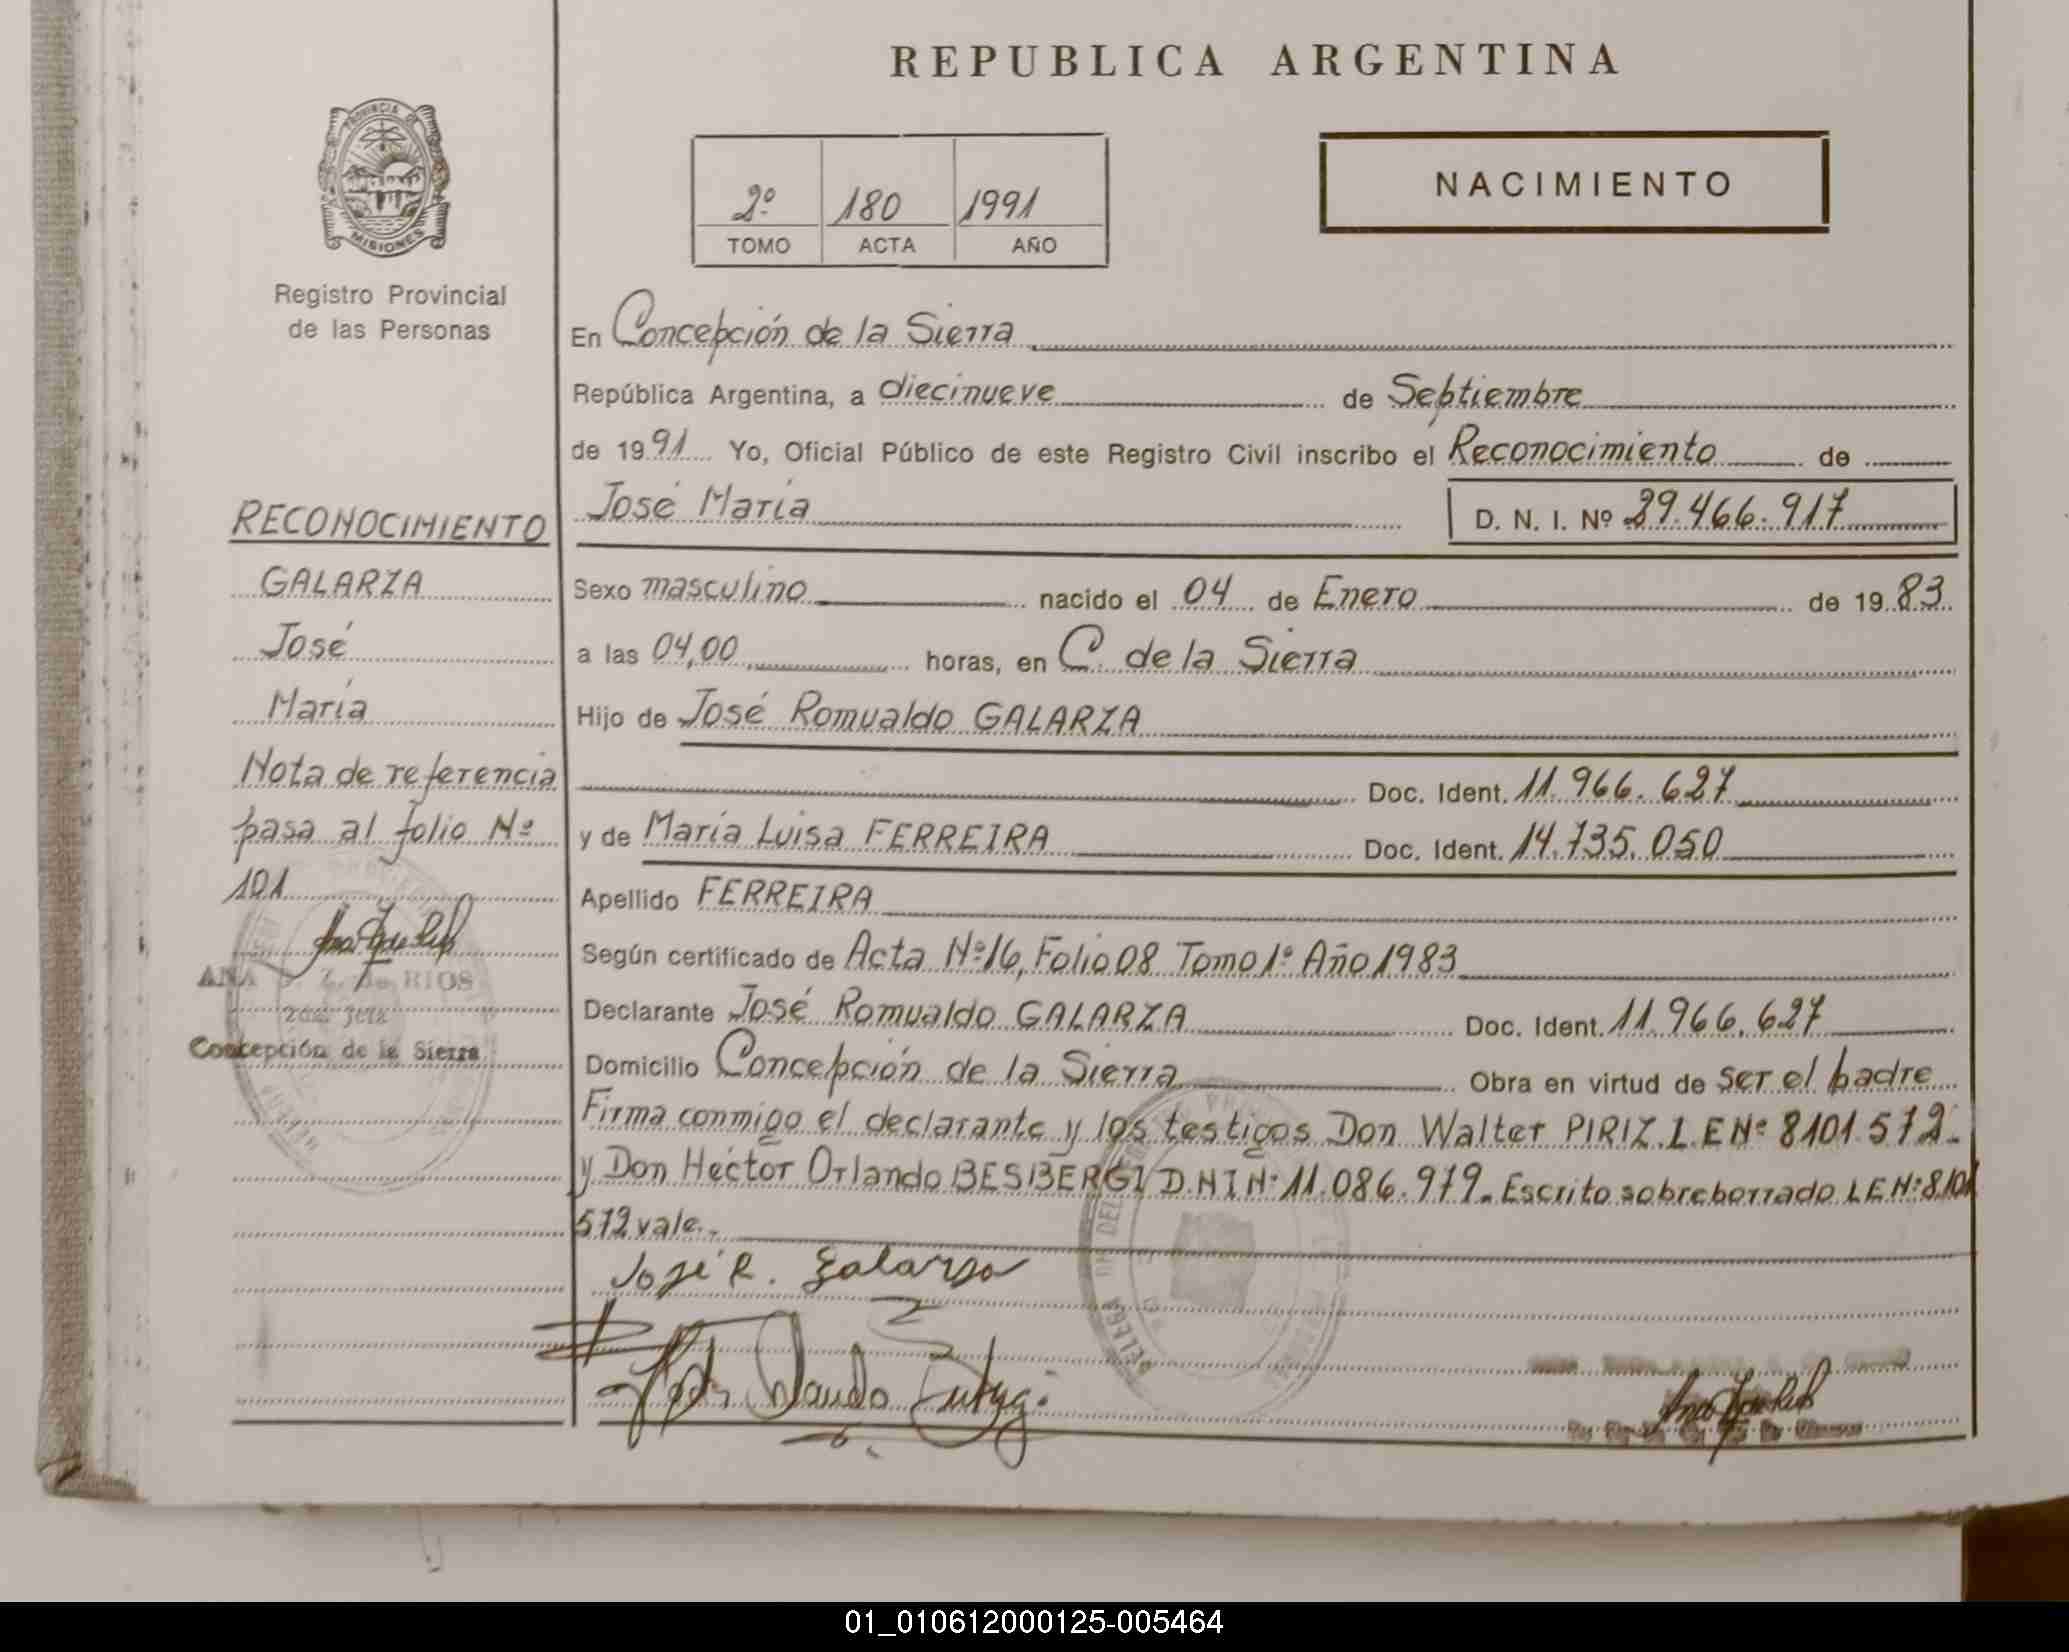 REPUBLICA ARGENTINA
PROVINCIA DE
MISIONES
Registro Provincial
de las Personas
2º 180 1991
TOMO ACTA AÑO
NACIMIENTO
En Concepción de la Sierra
República Argentina, a diecinueve de Septiembre
de 1991 Yo, Oficial Público de este Registro Civil inscribo el Reconocimiento de
José María D. N. I. Nº 29.466.917
Sexo masculino nacido el 04 de Enero de 1983
a las 04,00 horas, en C. de la Sierra
Hijo de José Romualdo GALARZA
Doc. Ident. 11.966.627
y de María Luisa FERREIRA Doc. Ident. 14.735.050
Apellido FERREIRA
Según certificado de Acta Nº16, Folio 08 Tomo 1º Año 1983
Declarante José Romualdo GALARZA Doc. Ident. 11.966.627
Domicilio Concepción de la Sierra Obra en virtud de ser el padre
Firma conmigo el declarante y los testigos Don Walter PIRIZ L E Nº 8101 572-
y Don Héctor Orlando BESBERGI D.N I Nº 11.086.979. Escrito sobreborrado L E Nº 8101
572 vale.-
José R. Galarza
RECONOCIMIENTO
GALARZA
José
María
Nota de referencia
pasa al folio Nº
101
ANA Z. de RIOS
2da. Jefa
Concepción de la Sierra
01_010612000125-005464